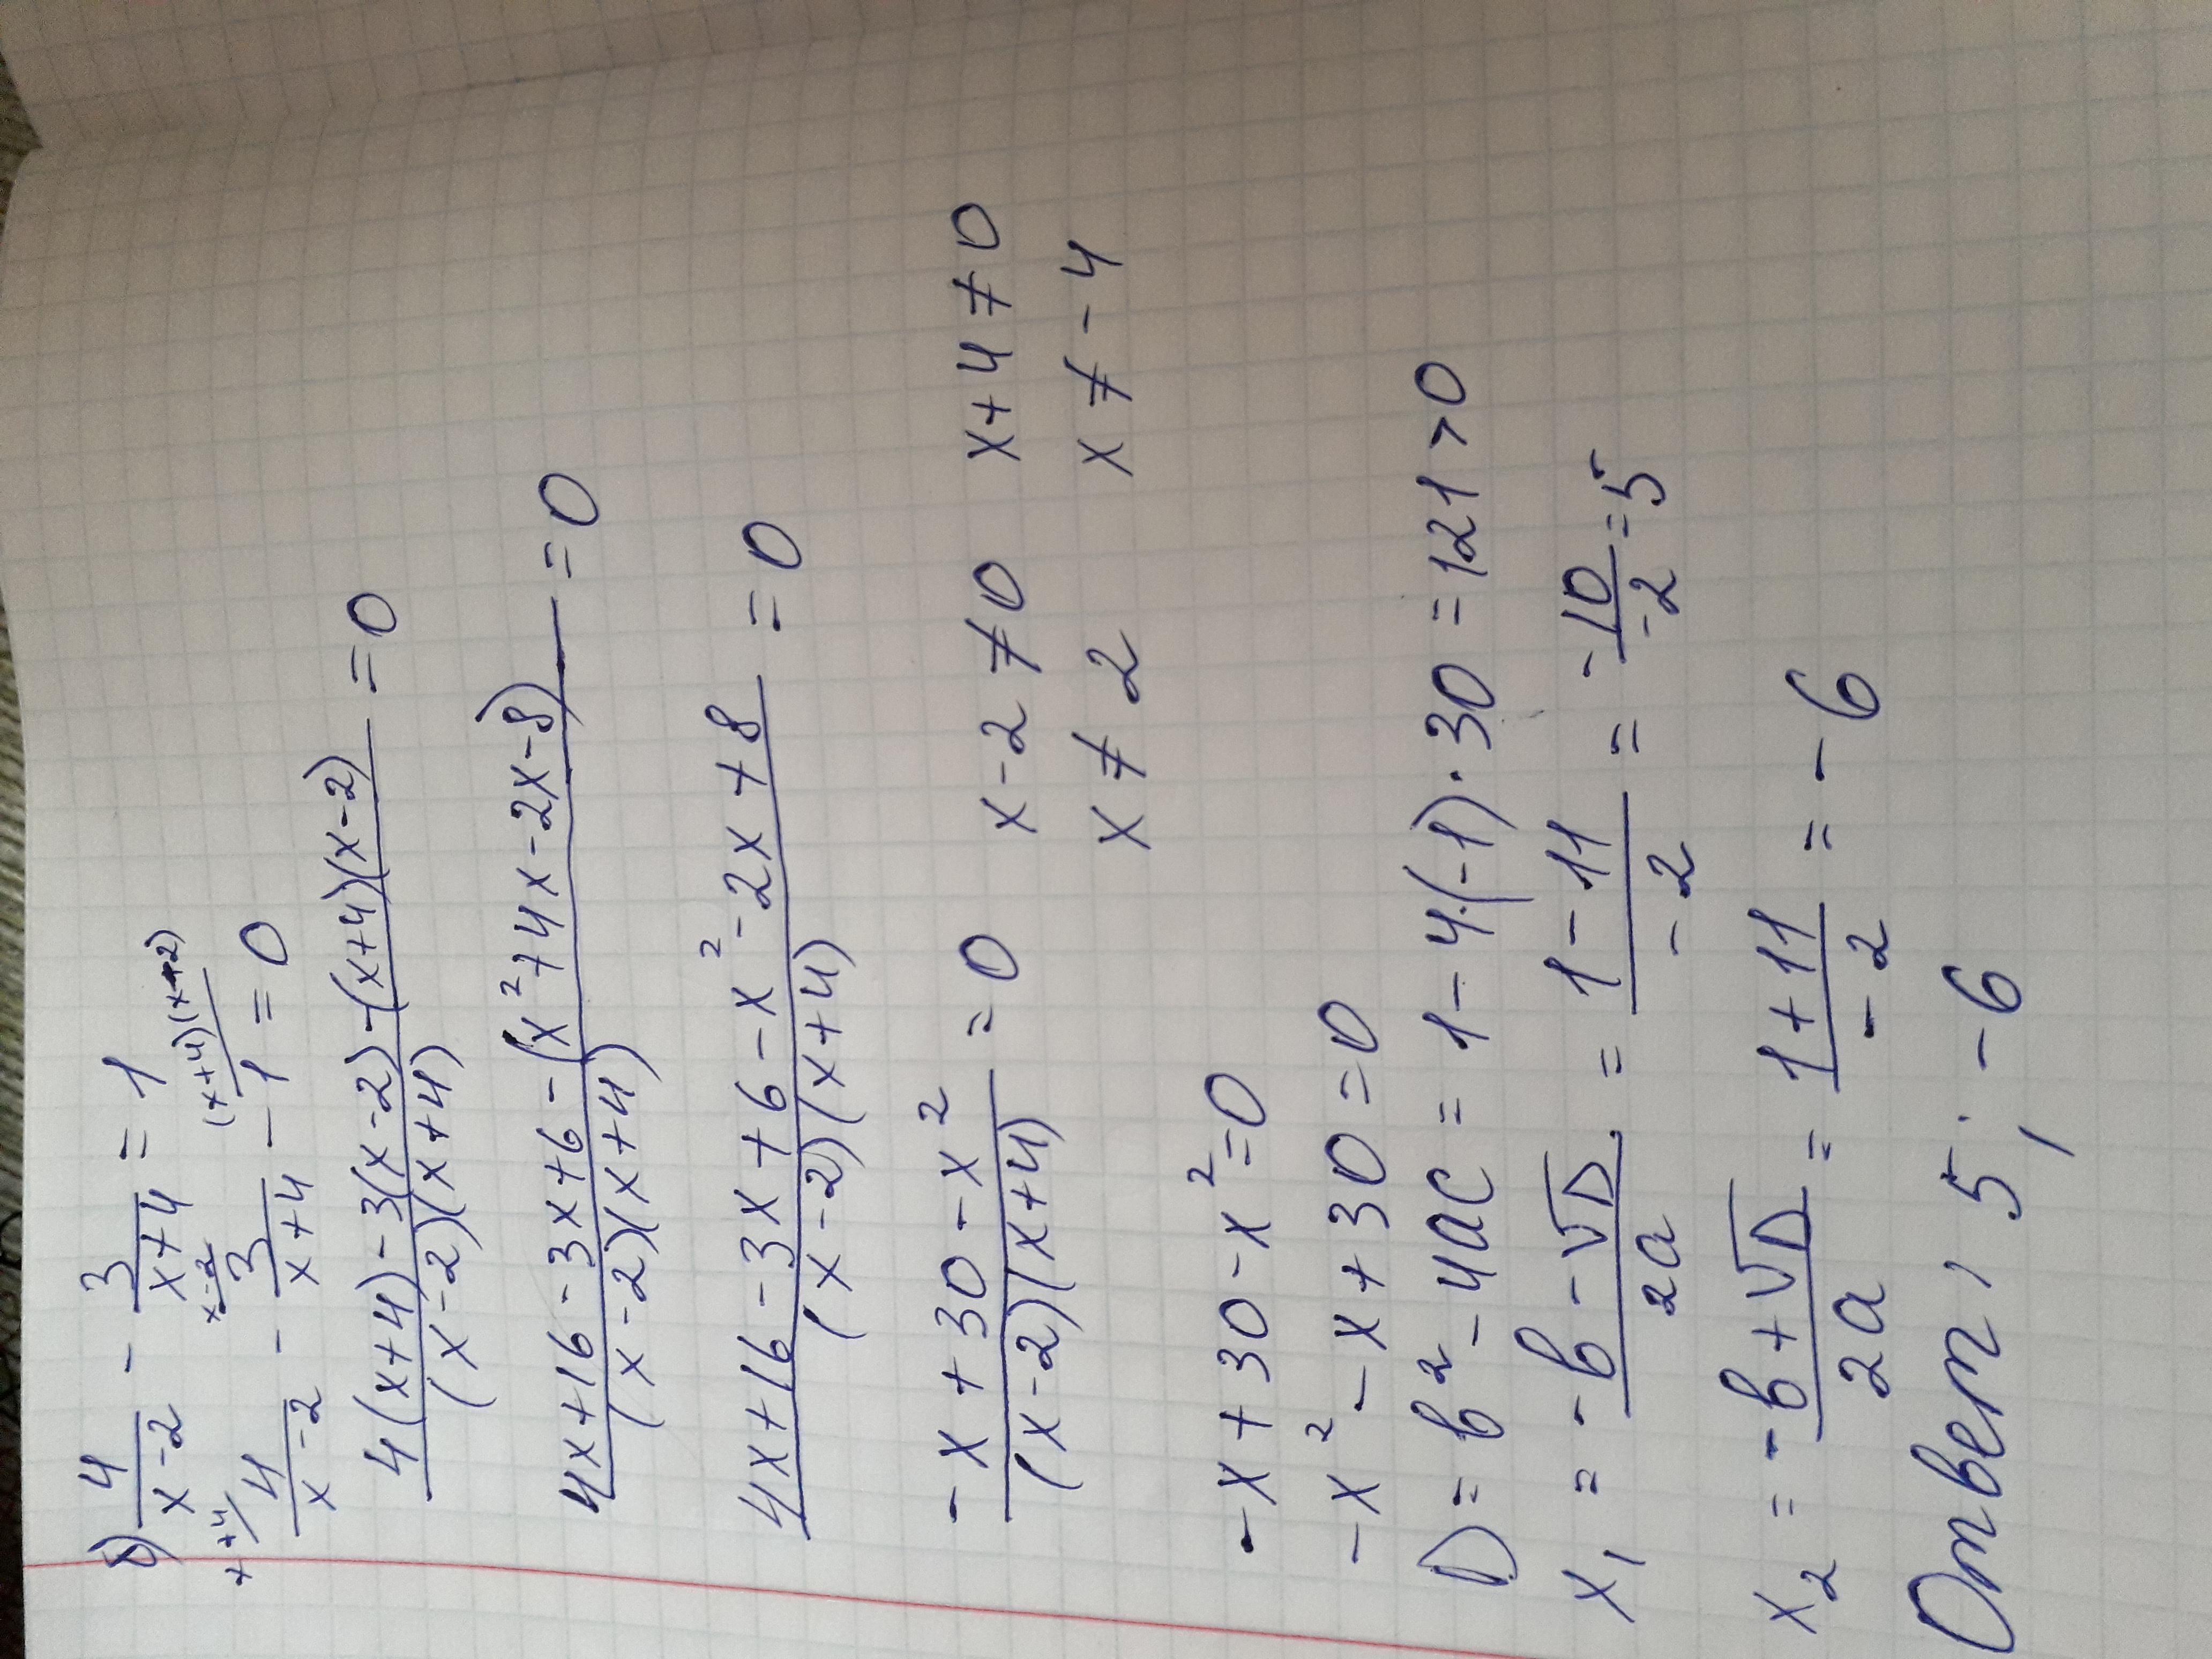 б) 4/(x-2) - 3/(x+4) = 1
x+4/ x-2 (x+4)(x-2)
4/(x-2) - 3/(x+4) - 1 = 0
(4(x+4) - 3(x-2) - (x+4)(x-2))/((x-2)(x+4)) = 0
(4x+16 - 3x+6 - (x²+4x-2x-8))/((x-2)(x+4)) = 0
(4x+16 - 3x+6 - x² - 2x+8)/((x-2)(x+4)) = 0
(-x+30-x²)/((x-2)(x+4)) = 0 x-2≠0 x+4≠0
x≠2 x≠-4
-x+30-x²=0
-x²-x+30=0
D = b²-4ac = 1-4·(-1)·30 = 121>0
x₁ = (-b-√D)/2a = (1-11)/-2 = -10/-2 = 5
x₂ = (-b+√D)/2a = (1+11)/-2 = -6
Ответ, 5; -6